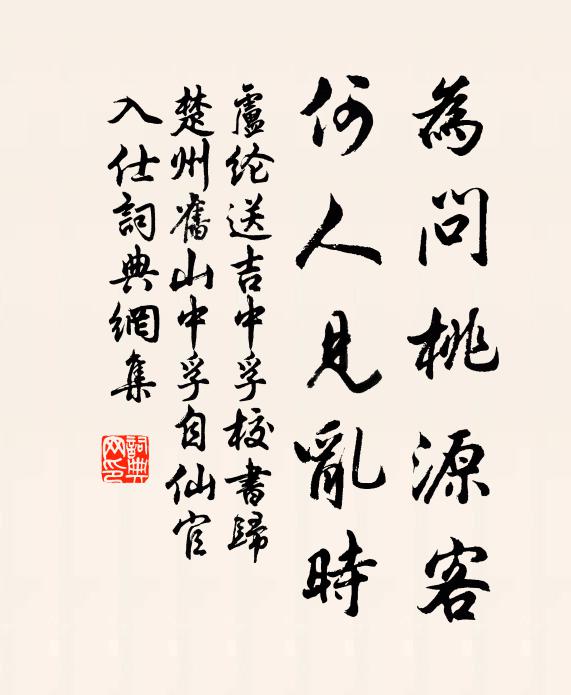 為問桃源客
何人見亂時
盧纶送吉中孚校書歸
楚州舊山中孚自仙官
入仕詞典網集
詞典
网印